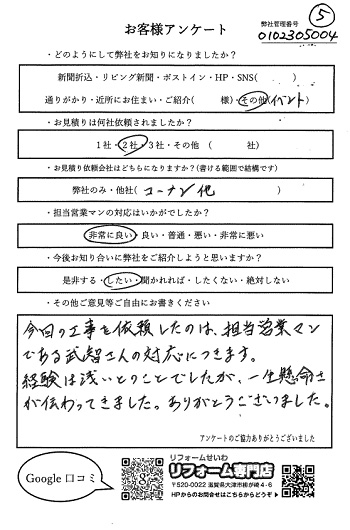 お客様アンケート
弊社管理番号 ⑤
0102305004
・どのようにして弊社をお知りになりましたか?
新聞折込・リビング新聞・ポストイン・HP・SNS( )
通りがかり・近所にお住まい・ご紹介( 様)・その他(イベント)
・お見積りは何社依頼されましたか?
1社・2社・3社・その他 ( 社)
・お見積り依頼会社はどちらになりますか?(書ける範囲で結構です)
弊社のみ・他社( コーナン他 )
・担当営業マンの対応はいかがでしたか?
非常に良い・良い・普通・悪い・非常に悪い
・今後お知り合いに弊社をご紹介しようと思いますか?
是非する・したい・聞かれれば・したくない・絶対しない
・その他ご意見等ご自由にお書きください
今回の工事を依頼したのは、担当営業マン
である武智さんの対応につきます。
経験は浅いとのことでしたが、一生懸命さ
が伝わってきました。ありがとうございました。
アンケートのご協力ありがとうございました
Google 口コミ
リフォームせいわ
リフォーム専門店
〒520-0022 滋賀県大津市柳が崎4-6
HPからのお問合せはこちらからどうぞ